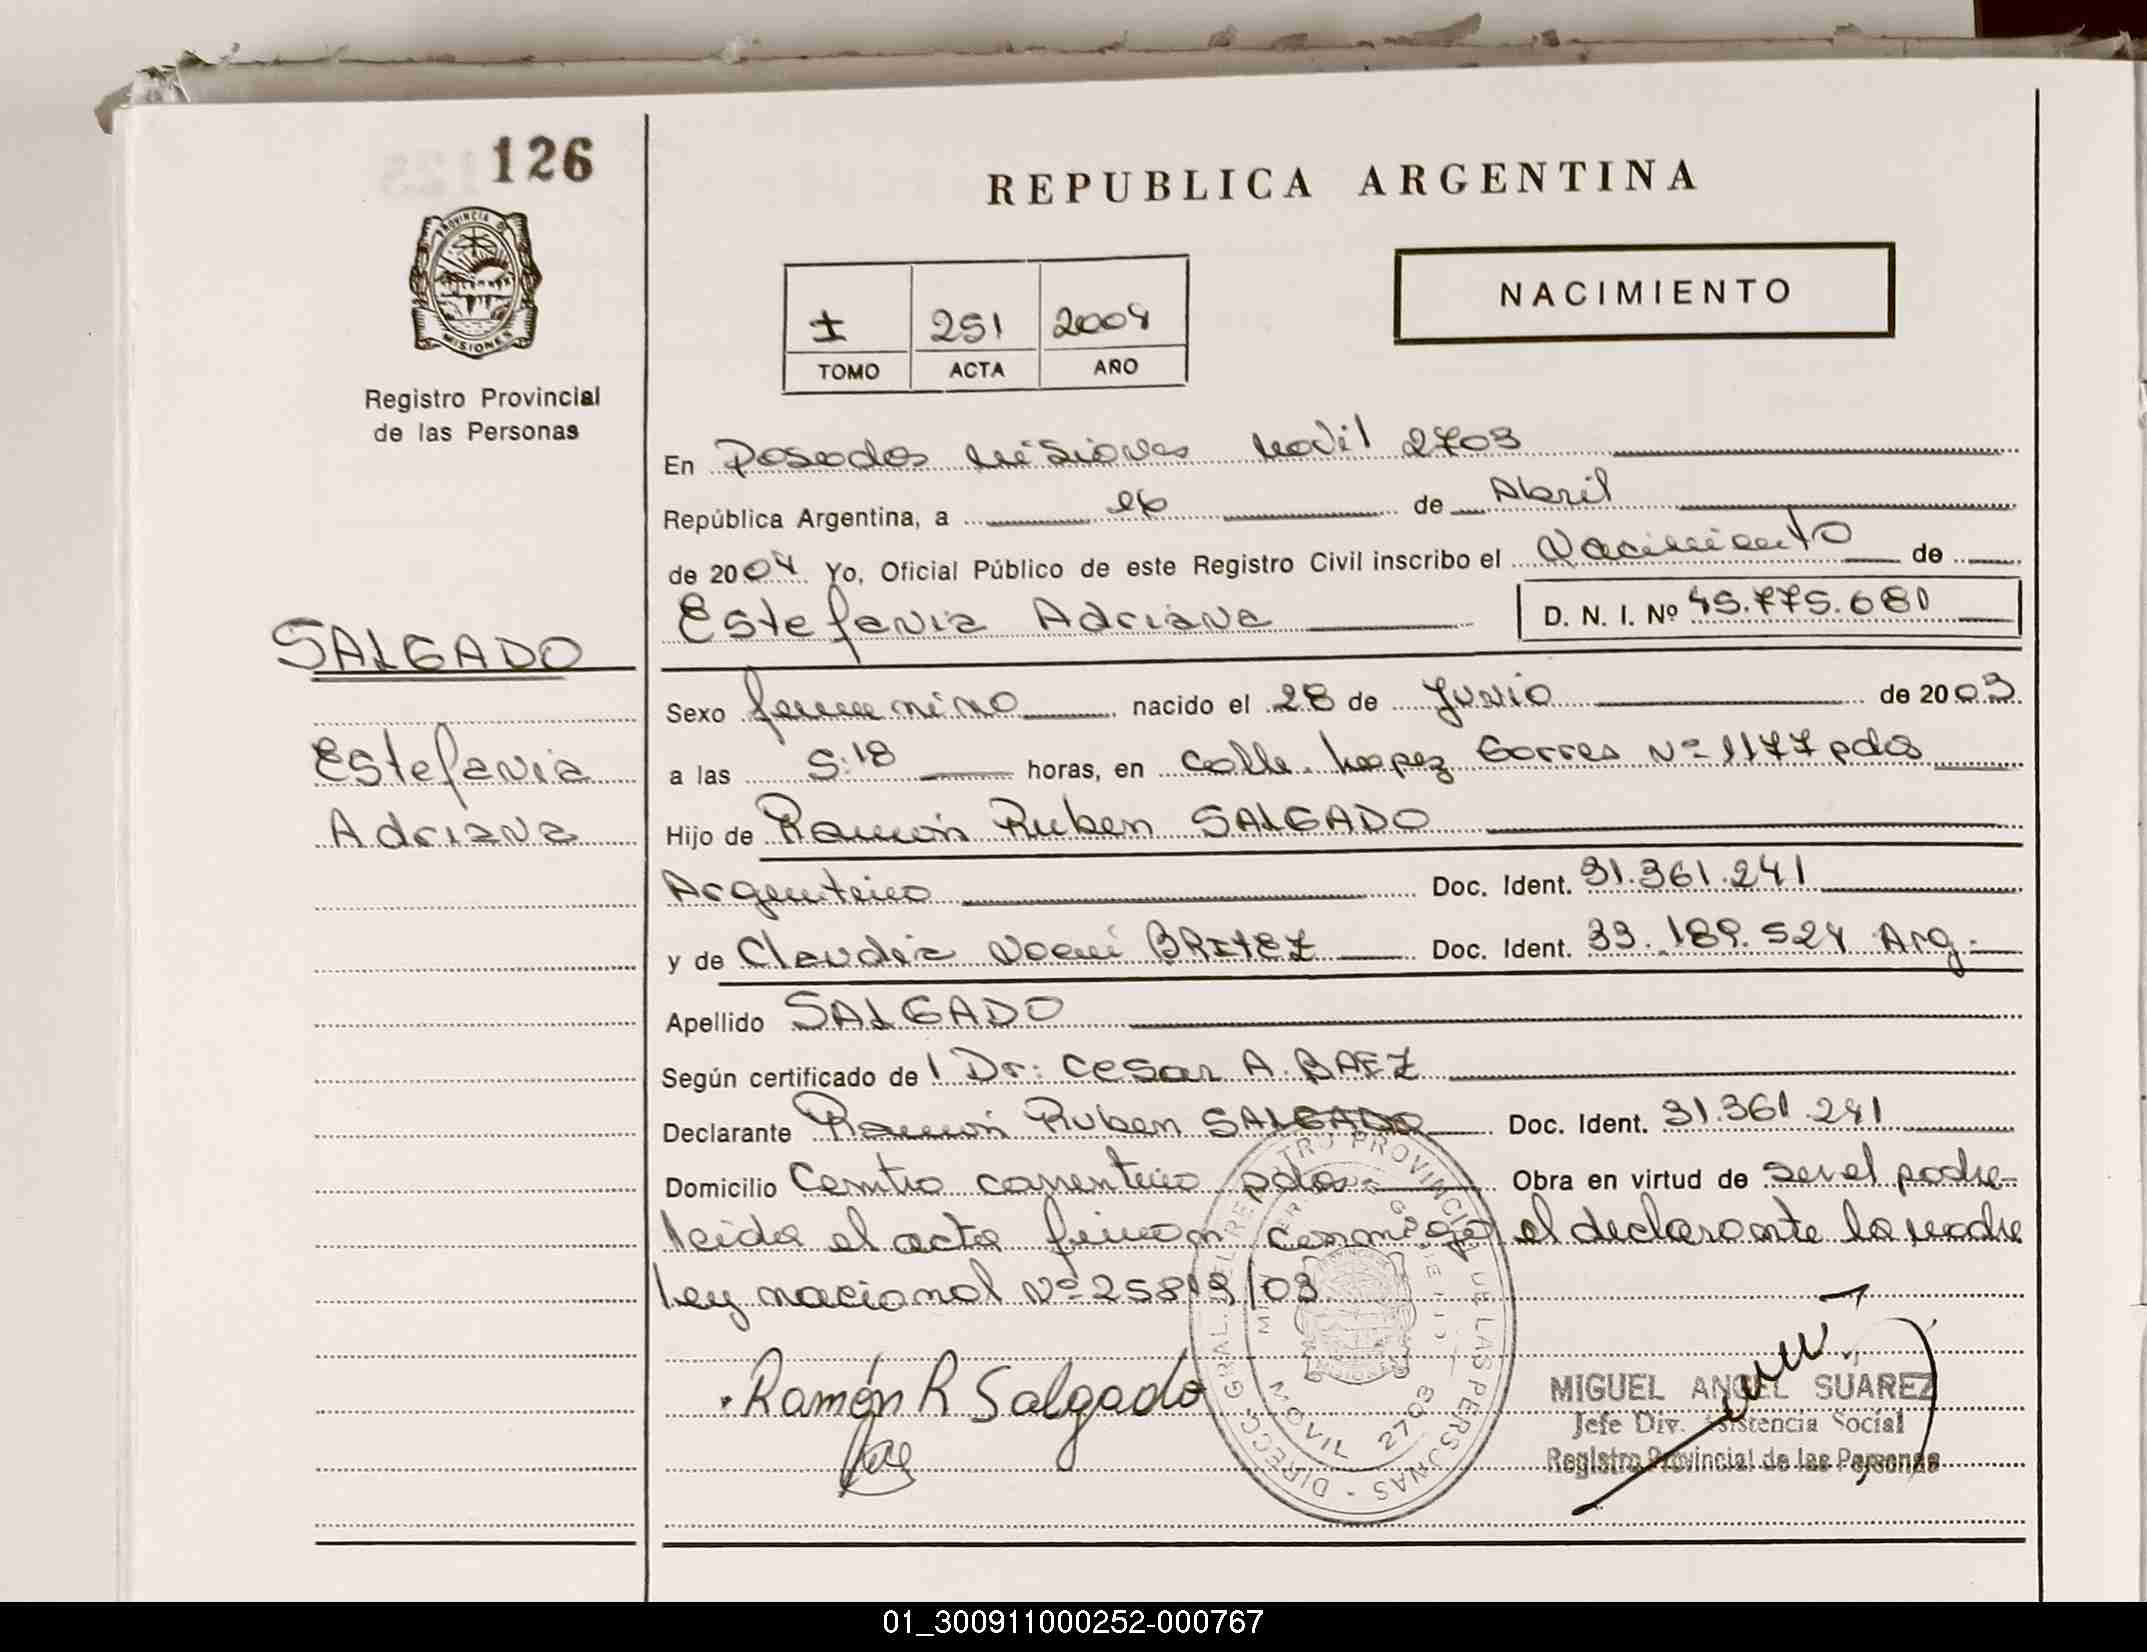 126
REPUBLICA ARGENTINA
PROVINCIA DE
MISIONES
Registro Provincial
de las Personas
I 251 2004
TOMO ACTA AÑO
NACIMIENTO
En Posadas Misiones Movil 2703
República Argentina, a 26 de Abril
de 2004 Yo, Oficial Público de este Registro Civil inscribo el Nacimiento de
Estefania Adriana D. N. I. Nº 45.775.680
SALGADO
Estefania
Adriana
Sexo femenino nacido el 28 de Junio de 2003
a las 5:18 horas, en calle Lopez Torres Nº 1177 pdas
Hijo de Ramón Ruben SALGADO
Argentino Doc. Ident. 31.361.241
y de Claudia Noemi BRITEZ Doc. Ident. 33.189.524 Arg.
Apellido SALGADO
Según certificado de Dr: Cesar A. BAEZ
Declarante Ramón Ruben SALGADO Doc. Ident. 31.361.241
Domicilio Centro correntino pdas Obra en virtud de ser el padre
leida el acta firman conmigo el declarante la madre
Ley nacional Nº 25819/03
Ramón R Salgado
DIRECC. GRAL. DEL REGISTRO PROVINCIAL DE LAS PERSONAS
MOVIL 2703
MIGUEL ANGEL SUAREZ
Jefe Div. Asistencia Social
Registro Provincial de las Personas
01_300911000252-000767